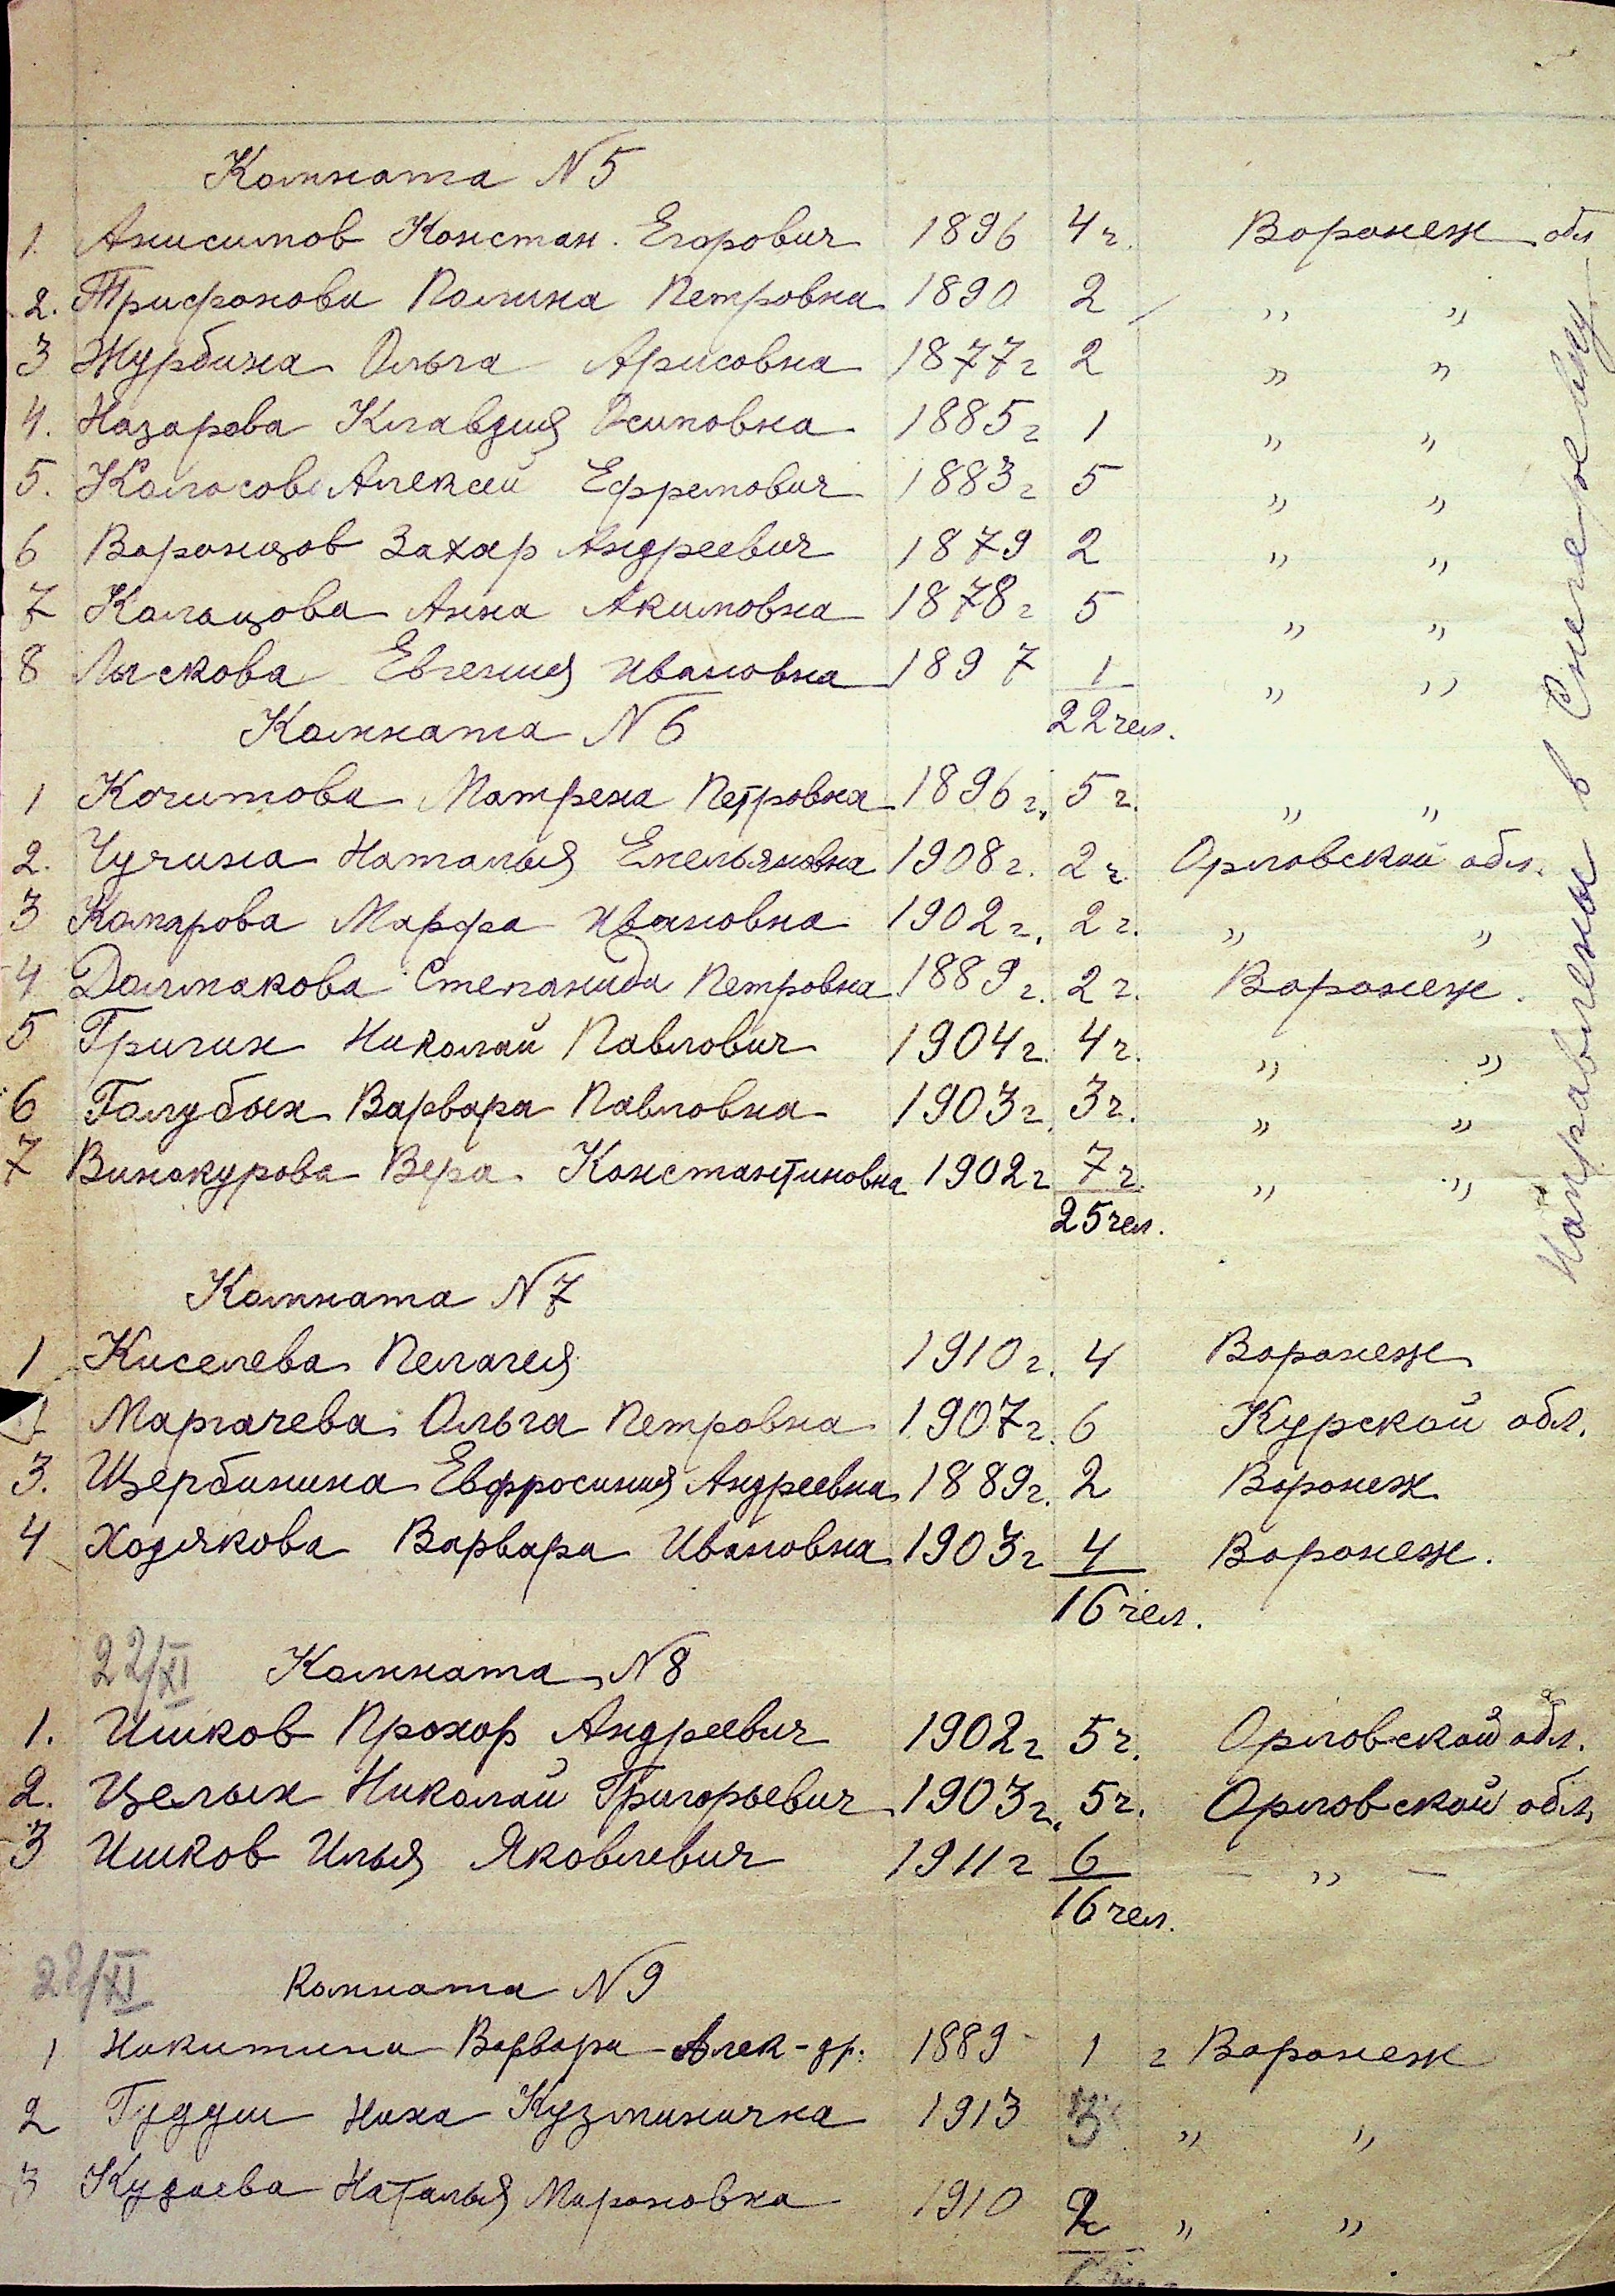 Комната N 5
1. Анисимов Констан. Егорович 1896 4 г. Воронеж обл
2. Трифонова Полина Петровна 1890 2 " "
3 Журбина Ольга Арисовна 1877 г 2 " "
4. Назарова Клавдия Осиповна 1885 г 1 " "
5. Колосов Алексей Ефремович 1883 г 5 " "
6 Воронцов Захар Андреевич 1879 2 " "
7 Кольцова Анна Акимовна 1878 г 5 " "
8 Лыскова Евгения Ивановна 1897 1 " "
22 чел.
Комната N 6
1 Кочитова Матрена Петровна 1896 г. 5 г. " "
2. Чучина Наталья Емельяновна 1908 г. 2 г. Орловской обл.
3 Комарова Марфа Ивановна 1902 г. 2 г. " "
4 Долматова Степанида Петровна 1889 г. 2 г. Воронеж.
5 Григин Николай Павлович 1904 г. 4 г. " "
6 Голубых Варвара Павловна 1903 г. 3 г. " "
7 Винокурова Вера Константиновна 1902 г 7 г. " "
25 чел.
Направлены в
Комната N 7
1 Киселева Пелагея 1910 г. 4 Воронеж
Маргачева Ольга Петровна 1907 г. 6 Курской обл.
3. Щербинина Евфросиния Андреевна 1889 г. 2 Воронеж
4 Ходякова Варвара Ивановна 1903 г 4 Воронеж.
16 чел.
22/XI Комната N 8
1. Ишков Прохор Андреевич 1902 г 5 г. Орловской обл.
2. Целых Николай Григорьевич 1903 г. 5 г. Орловской обл.
3 Ишков Илья Яковлевич 1911 г 6 — " —
16 чел.
22/XI Комната N 9
1 Никитина Варвара Алек-др. 1889 1 г Воронеж
2 Гудуш Нина Кузминична 1913 3 " "
3 Кудаева Наталья Мироновна 1910 2 " "